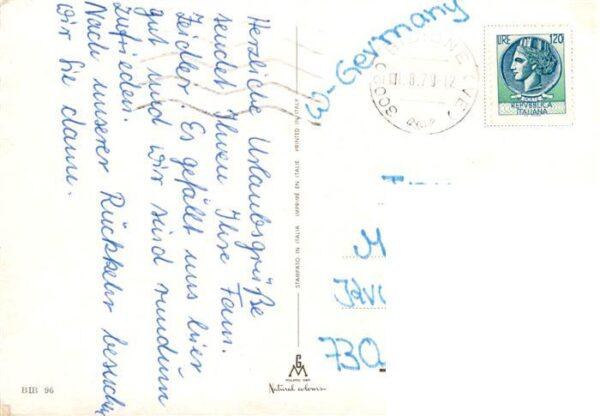 Herzliche Urlaubsgrüße
sendet Ihnen Ihre Fam.
Zeidler. Es gefällt uns hier
gut und wir sind rundum
zufrieden.
Nach unserer Rückkehr besuchen
wir Sie dann.
D-Germany
LIRE 120
REPVBBLICA
ITALIANA
BIBIONE (VE)
STAMPATO IN ITALIA IMPRIMÉ EN ITALIE PRINTED IN ITALY
Natural colours
BIB 96